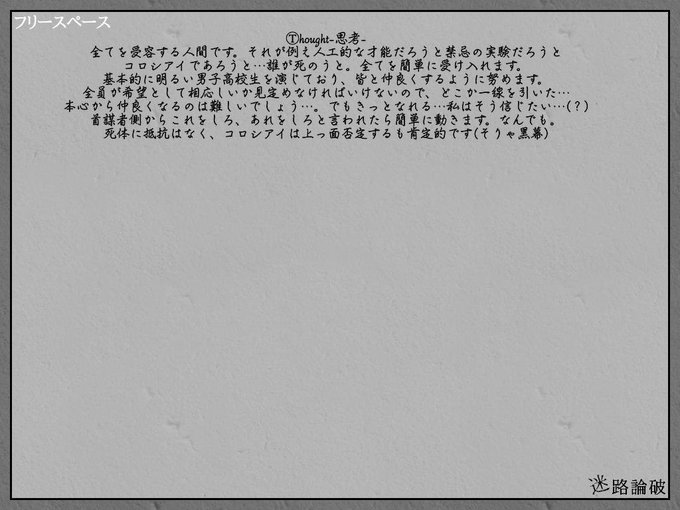 フリースペース
Ⓣhought-思考-
全てを受容する人間です。それが例え人工的な才能だろうと禁忌の実験だろうと
コロシアイであろうと…誰が死のうと。全てを簡単に受け入れます。
基本的に明るい男子高校生を演じており、皆と仲良くするように努めます。
全員が希望として相応しいか見定めなければいけないので、どこか一線を引いた…
本心から仲良くなるのは難しいでしょう…。でもきっとなれる…私はそう信じたい…(？)
首謀者側からこれをしろ、あれをしろと言われたら簡単に動きます。なんでも。
死体に抵抗はなく、コロシアイは上っ面否定するも肯定的です(そりゃ黒幕)
迷路論破